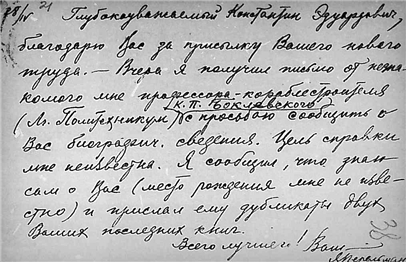 Глубокоуважаемый Константин Эдуардович,
благодарю Вас за присылку Вашего нового
труда. — Вчера я получил письмо от незна-
комого мне профессора-кораблестроителя
К. П. Боклевского
(Лг. Политехникум) с просьбою сообщить о
Вас биографич. сведения. Цель справки
мне неизвестна. Я сообщил, что знаю
сам о Вас (место рождения мне не изве-
стно) и прислал ему дубликаты двух
Ваших последних книг.
Всего лучшего! Ваш
ЯПерельман
38